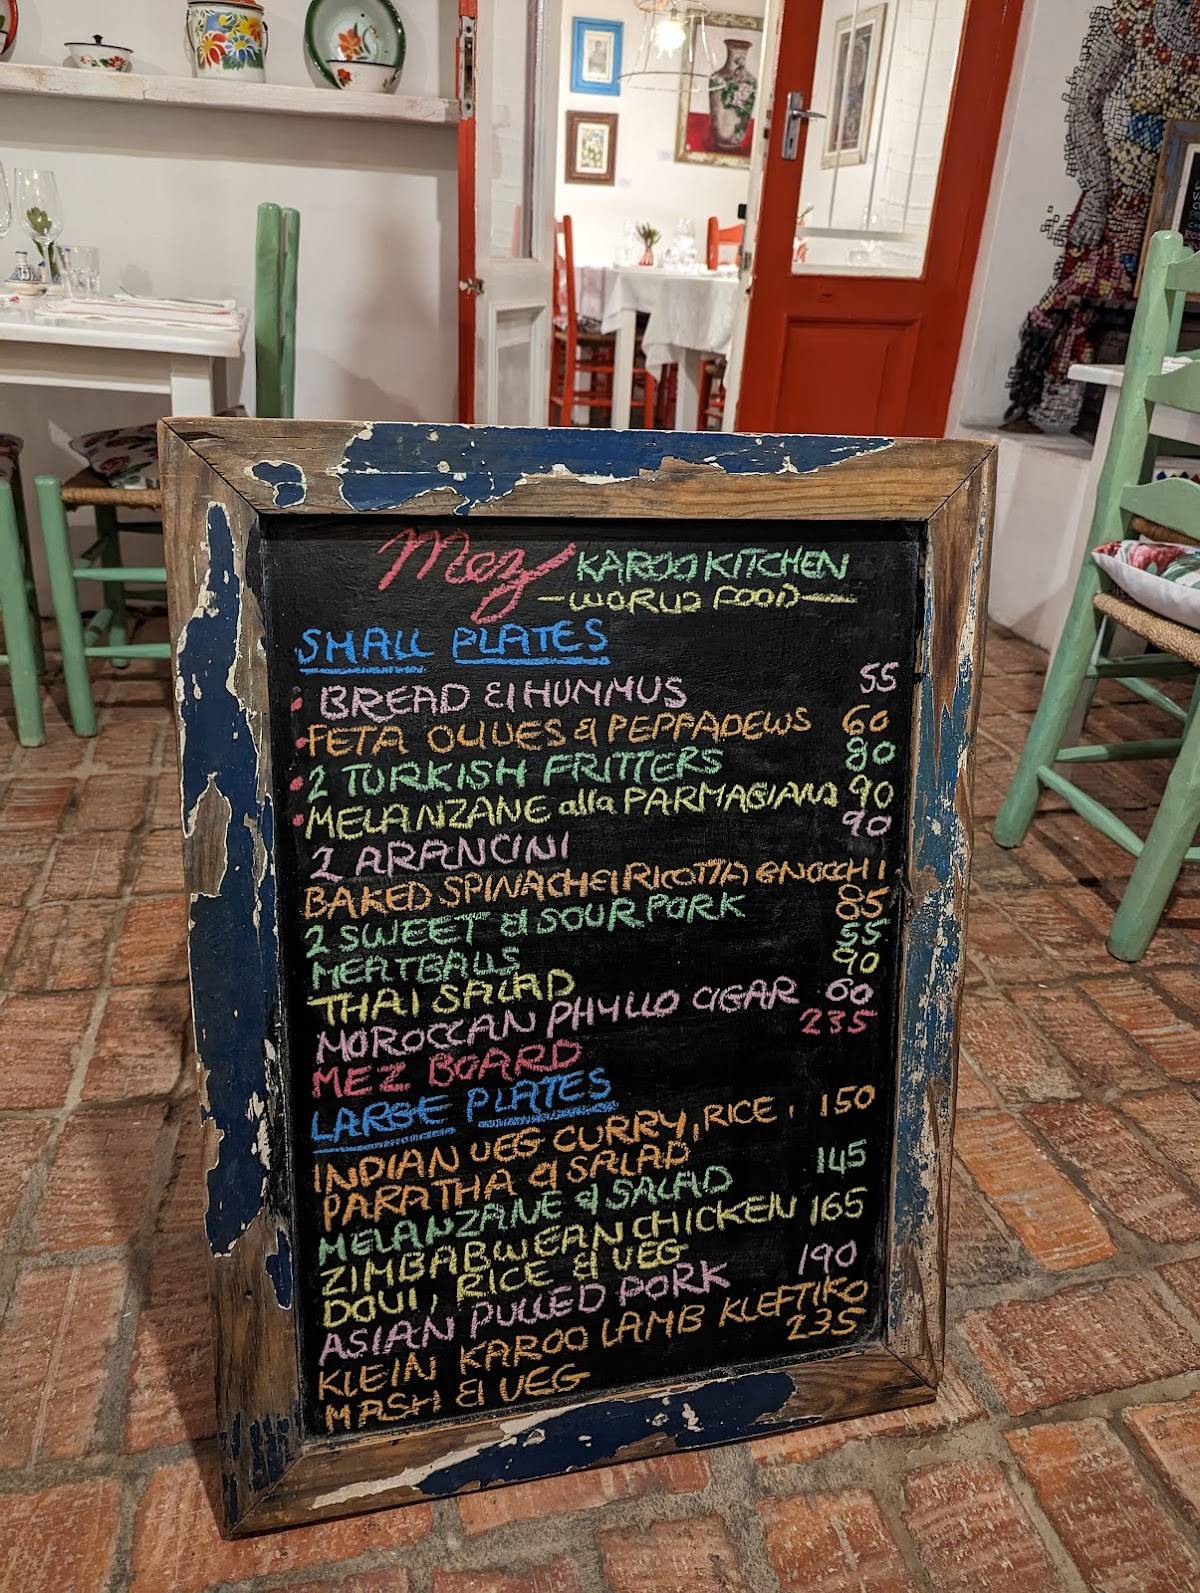 Mez KAROO KITCHEN
—WORLD FOOD—
SMALL PLATES
• BREAD & HUMMUS 55
• FETA OLIVES & PEPPADEWS 60
• 2 TURKISH FRITTERS 80
• MELANZANE alla PARMAGIANA 90
2 ARANCINI 90
BAKED SPINACH & RICOTTA GNOCCHI 85
2 SWEET & SOUR PORK
MEATBALLS 55
THAI SALAD 90
MOROCCAN PHYLLO CIGAR 60
MEZ BOARD 235
LARGE PLATES
INDIAN VEG CURRY, RICE, 150
PARATHA & SALAD
MELANZANE & SALAD 145
ZIMBABWEAN CHICKEN 165
DOVI, RICE & VEG
ASIAN PULLED PORK 190
KLEIN KAROO LAMB KLEFTIKO
MASH & VEG 235